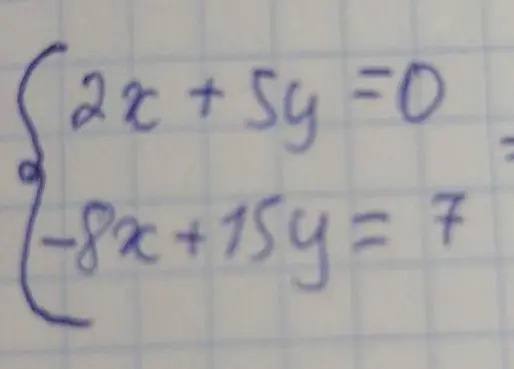 2x + 5y = 0
-8x + 15y = 7